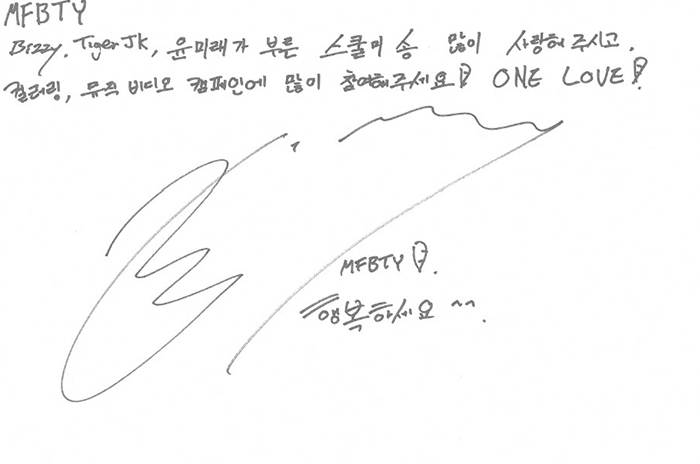 MFBTY
Bizzy. Tiger JK, 윤미래가 부른 스쿨미 송 많이 사랑해 주시고.
컬러링, 뮤직비디오 캠페인에 많이 참여해주세요! ONE LOVE!
MFBTY!.
행복하세요 ^^.